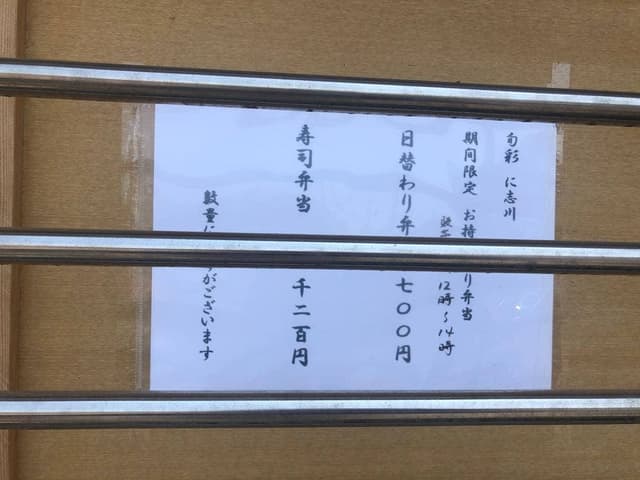 旬彩 に志川
期間限定 お持 り弁当
12時~14時
日替わり弁 七〇〇円
寿司弁当 千二百円
数量に がございます